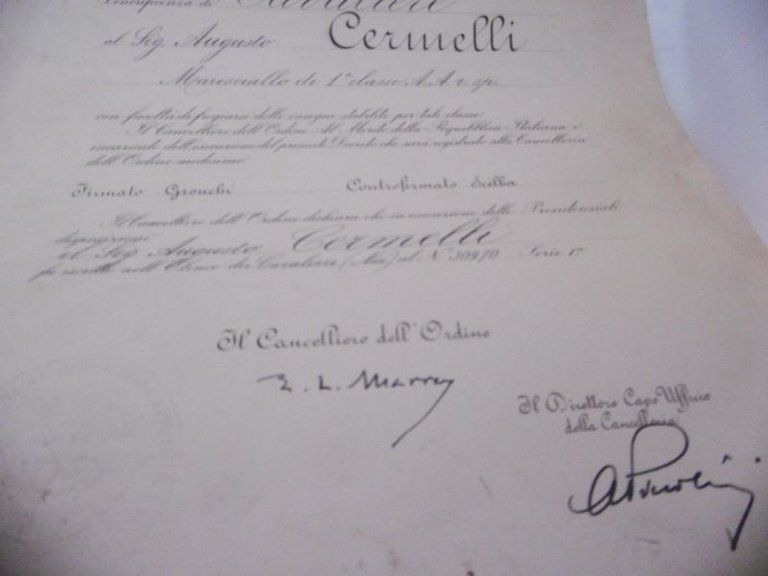 l'onorificenza di Cavaliere
al Sig. Augusto Cermelli
Maresciallo di 1ª classe A.A. r. sp.
con facoltà di fregiarsi delle insegne stabilite per tale classe.
Il Cancelliere dell'Ordine "Al Merito della Repubblica Italiana" è
incaricato dell'esecuzione del presente Decreto che sarà registrato alla Cancelleria
dell'Ordine medesimo.
Firmato Gronchi Controfirmato Scelba
Il Cancelliere dell'Ordine dichiara che in esecuzione delle Presidenziali
disposizioni
il Sig. Augusto Cermelli
fu iscritto nell'Elenco dei Cavalieri (Naz.) al N° 30970 Serie 1ª
Il Cancelliere dell'Ordine
Il Direttore Capo Ufficio
della Cancelleria